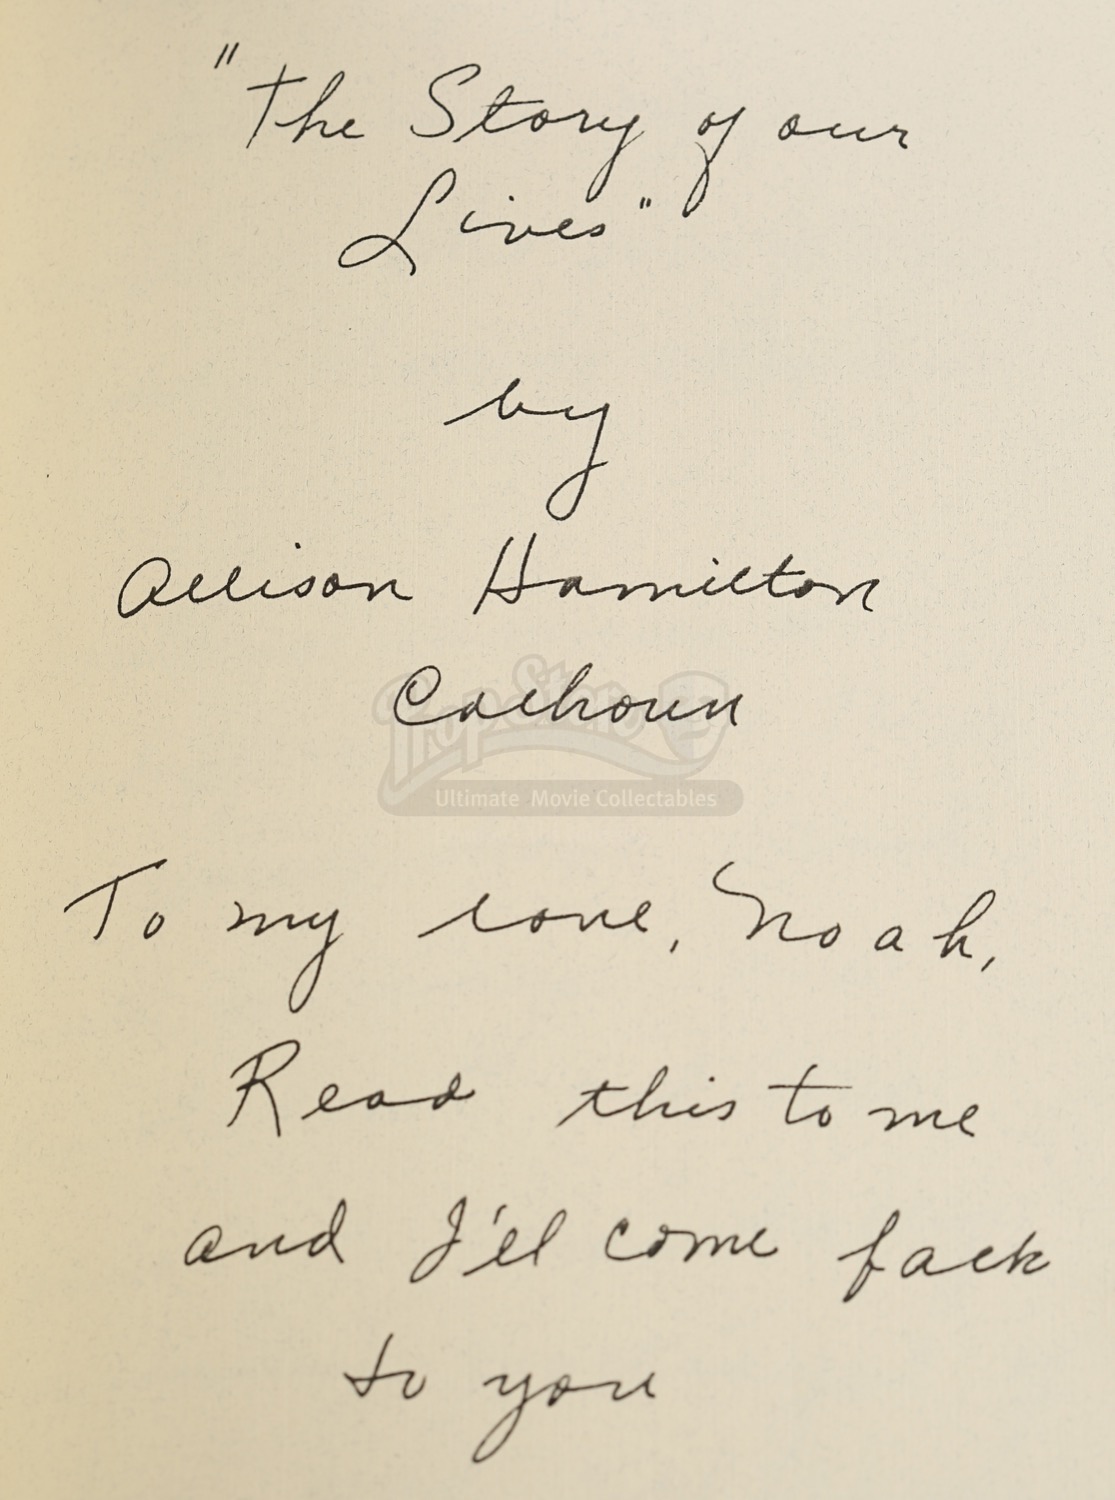 "The Story of our
Lives"
by
Allison Hamilton
Calhoun
PropStore
Ultimate Movie Collectables
To my love, Noah,
Read this to me
and I'll come back
to you